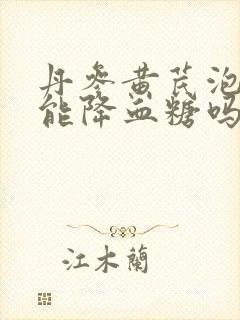 丹参黄芪泡
能降血糖吗
江木蘭